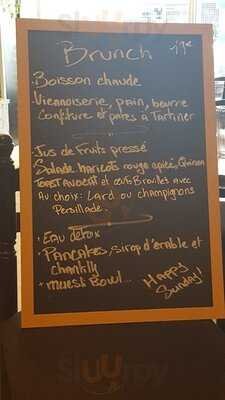 Brunch 19€
• Boisson chaude
Viennoiserie, pain, beurre
Confiture et pates à Tartiner
• Jus de Fruits pressé
Salade haricots rouge epicé, Quinoa
Toast Avocat et oeufs Brouillés avec
Au choix: Lard ou champignons
Persillade.
• Eau détox
• Pancakes, sirop d'érable et
chantilly
+ muesli Bowl...
Happy
Sunday!
sluurpy